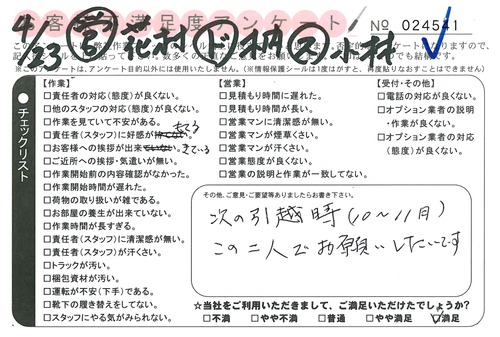 お客様満足度アンケート
№ 024541
4/23 営 花村 下 柄 子 小林
※このアンケートは、アンケート目的以外には使用いたしません。(※情報保護シールは1度はがすと、再度貼りなおすことはできません)
チェックリスト
【作業】
□責任者の対応(態度)が良くない。
□他のスタッフの対応(態度)が良くない。
□作業を見ていて不安がある。
□責任者(スタッフ)に好感が もてる
□お客様への挨拶が出来ていない。 きている
□ご近所への挨拶・気遣いが無い。
□作業開始前の内容確認がなかった。
□作業開始時間が遅れた。
□荷物の取り扱いが雑である。
□お部屋の養生が出来ていない。
□作業時間が長すぎる。
□責任者(スタッフ)に清潔感が無い。
□責任者(スタッフ)が汗くさい。
□トラックが汚い。
□梱包資材が汚い。
□運転が不安(下手)である。
□靴下の履き替えをしてない。
□スタッフにやる気がみられない。
【営業】
□見積もり時間に遅れた。
□見積もり時間が長い。
□営業マンに清潔感が無い。
□営業マンが煙草くさい。
□営業マンが汗くさい。
□営業態度が良くない。
□営業の説明と作業が一致してない。
【受付・その他】
□電話の対応が良くない。
□オプション業者の説明
・作業が良くない。
□オプション業者の対応
(態度)が良くない。
その他、ご意見・ご要望等ありましたらお書き下さい。
次の引越時(10〜11月)
この二人でお願いしたいです
☆当社をご利用いただきまして、ご満足いただけたでしょうか?
□不満 □やや不満 □普通 □やや満足 ☑満足